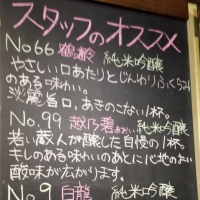 スタッフのオススメ
No66 鶴齢 純米吟醸
やさしい口あたりとじんわりふくらみ
のある味わい。
淡麗旨口。あきのこない1杯。
No.99 越乃碧あおい 純米吟醸
若い蔵人が醸した自慢の1杯。
キレのある味わいのあとに心地のよい
酸味が広がります。
No9 白龍 純米吟醸